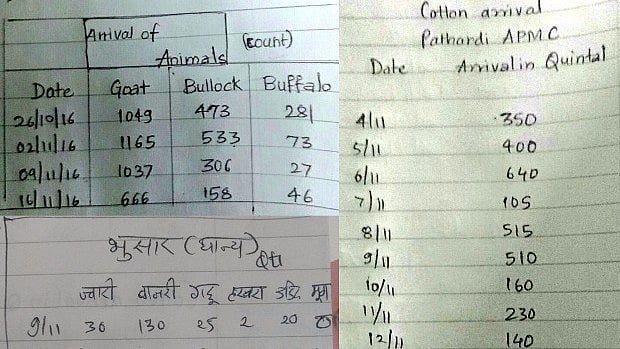 Arrival of
Animals (count)
Date Goat Bullock Buffalo
26/10/16 1049 473 281
02/11/16 1165 533 73
09/11/16 1037 306 27
16/11/16 666 158 46
भुसार (धान्य) Qti
ज्वारी बाजरी गहू हरबरा उडिद मूग
9/11 30 130 25 2 20
Cotton arrival
Pathardi APMC
Date Arrival in Quintal
4/11 350
5/11 400
6/11 640
7/11 105
8/11 515
9/11 510
10/11 160
11/11 230
12/11 140